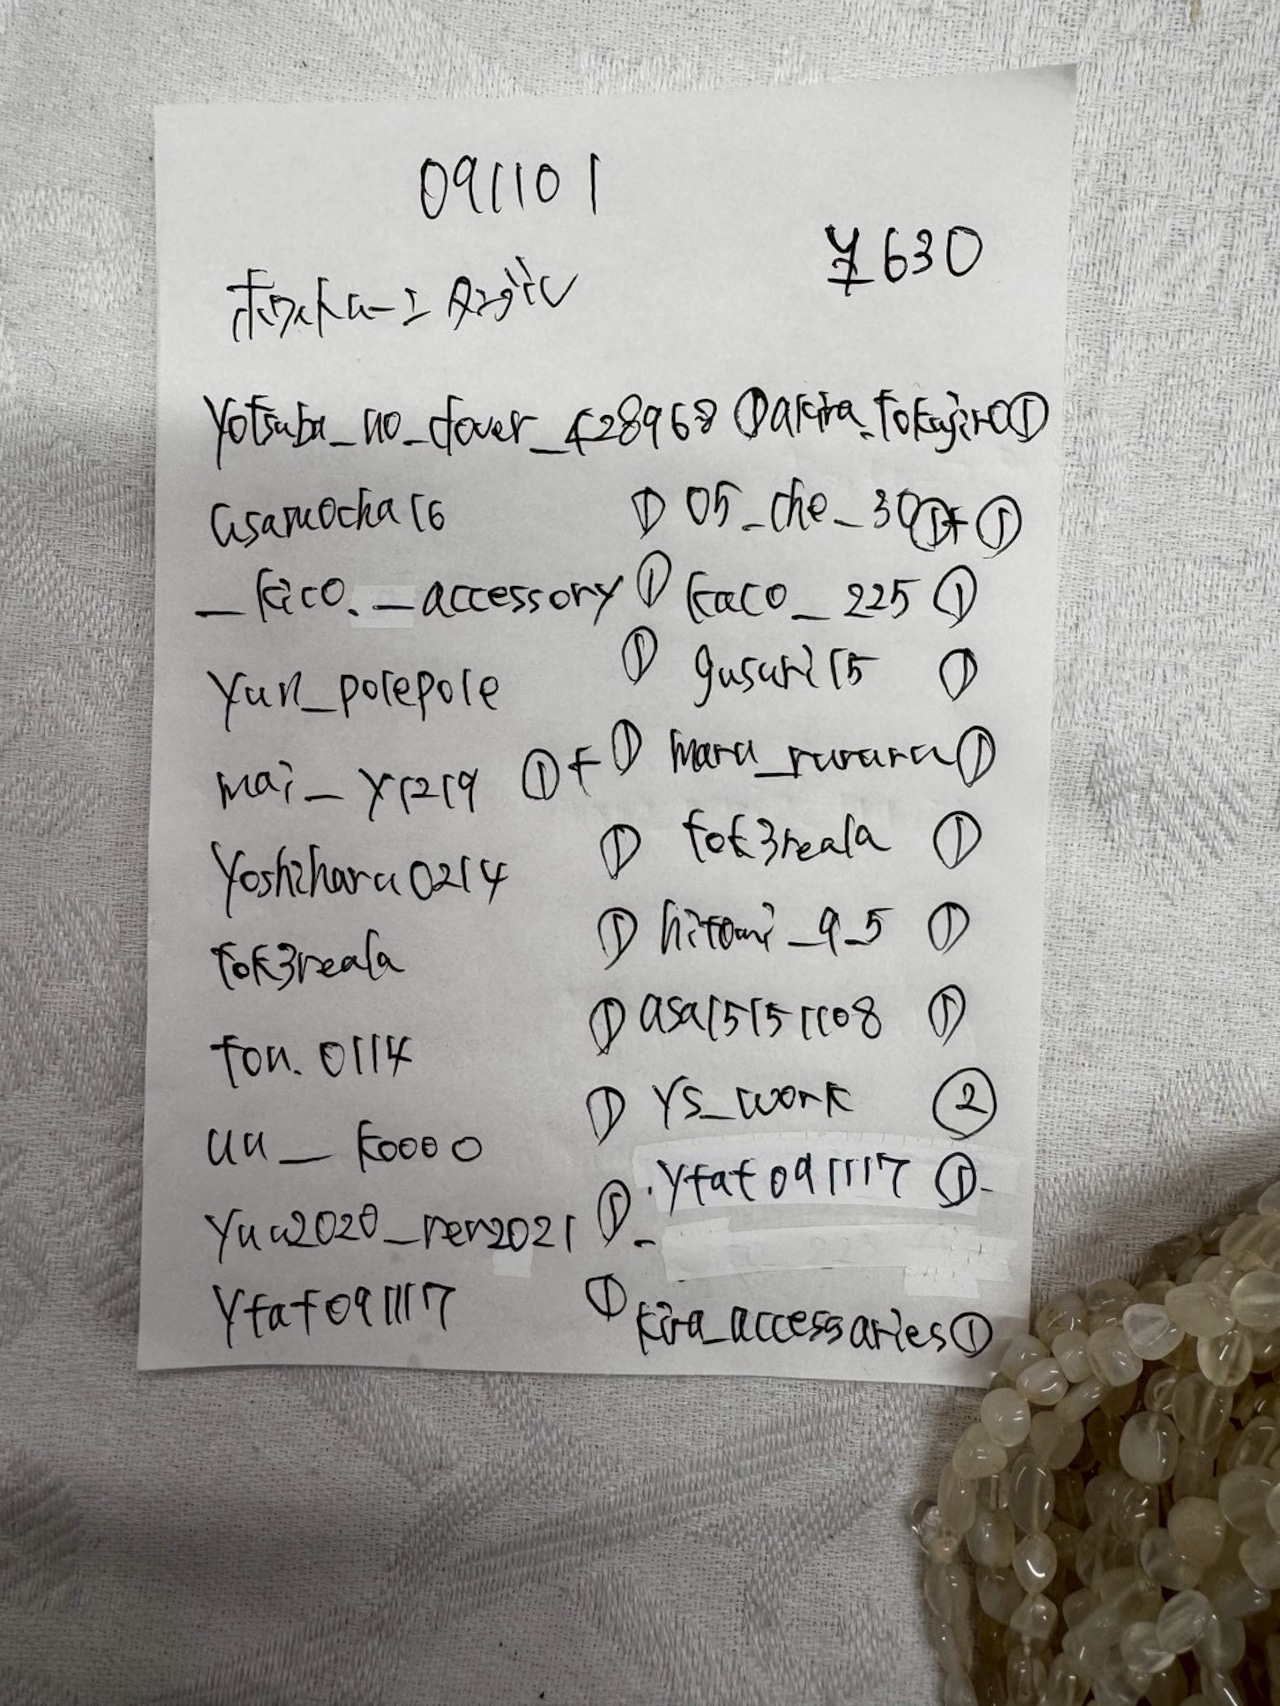 091101
¥630
ホワイトムーン タンブル
yotsuba_no_clover_428968 ① akira.tokujiro ①
asamocha16 ① 05_che_30 ①+①
_kico._accessory ① kaco_225 ①
yun_polepole ① gusuri15 ①
mai_y1219 ①+① maru_ruraru ①
yoshiharu0214 ① tok3reala ①
tok3reala ① hitomi_9_5 ①
ton.0114 ① asa15151108 ①
uu_koooo ① ys_work ②
yuu2020_ren2021 ① yfaf091117 ①
yfaf091117 ① kira_accessaries ①